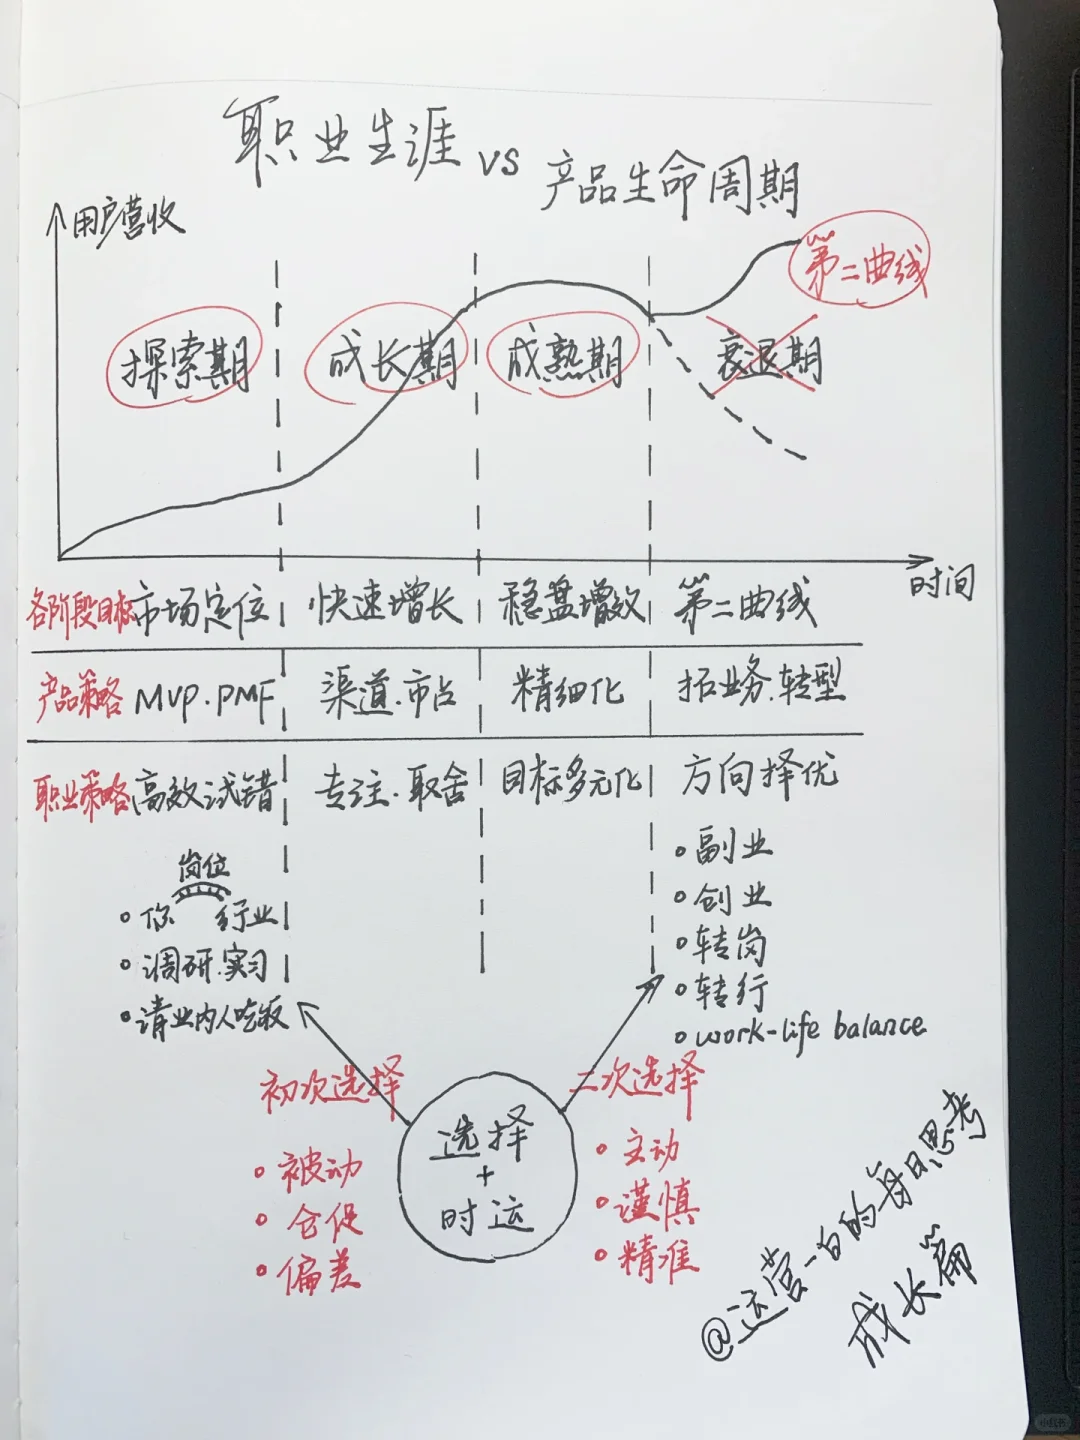 职业生涯 vs 产品生命周期
用户营收
第二曲线
探索期 成长期 成熟期 衰退期
时间
各阶段目标 市场定位 快速增长 稳盘增效 第二曲线
产品策略 MVP.PMF 渠道.市占 精细化 拓业务.转型
职业策略 高效试错 专注.取舍 目标多元化 方向择优
岗位
你 行业
调研.实习
请业内人吃饭
副业
创业
转岗
转行
work-life balance
初次选择
被动
仓促
偏差
选择
+
时运
二次选择
主动
谨慎
精准
@运营一白的每日思考
成长篇
小红书